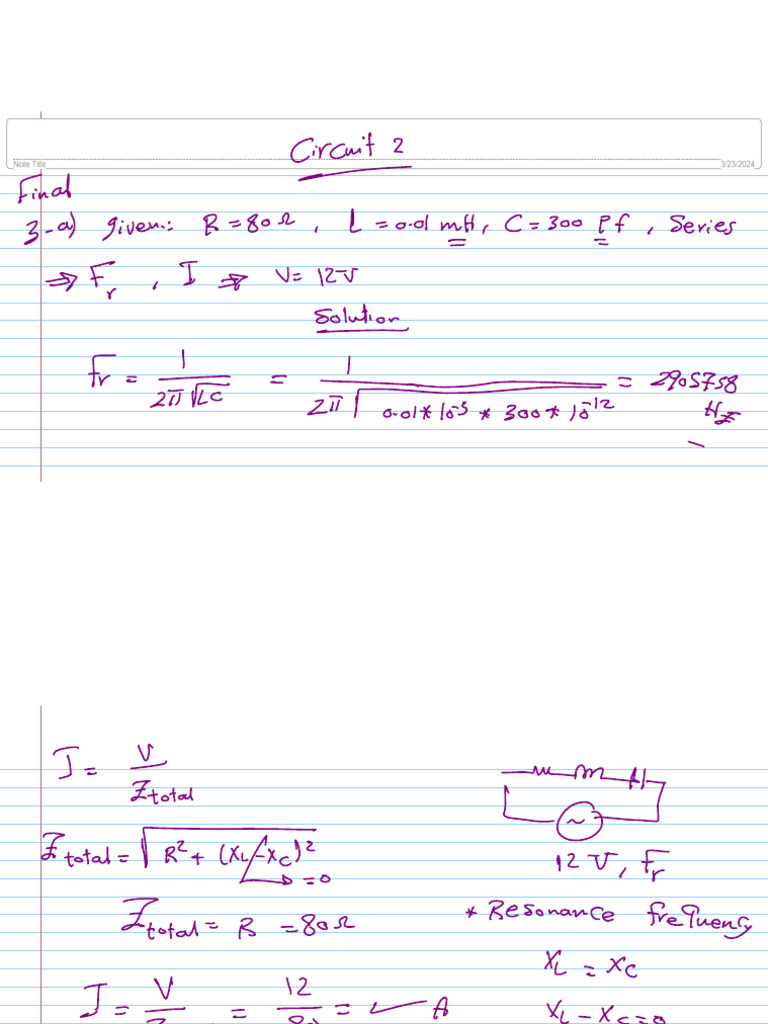 Circuit 2
Note Title
3/23/2024
Final
3-a) given:: R = 80Ω , L = 0.01 mH, C = 300 Pf , Series
⇒ Fr , I ⇒ V = 12V
Solution
Fr = 1 / 2π√LC = 1 / 2π√0.01*10^-3 * 300*10^-12 = 2905758 Hz
I = V / Ztotal
Ztotal = √R² + (XL - XC)²
→ = 0
12 V, Fr
Ztotal = R = 80Ω
* Resonance frequency
XL = XC
I = V / = 12 / 80 = A
XL - XC = 0